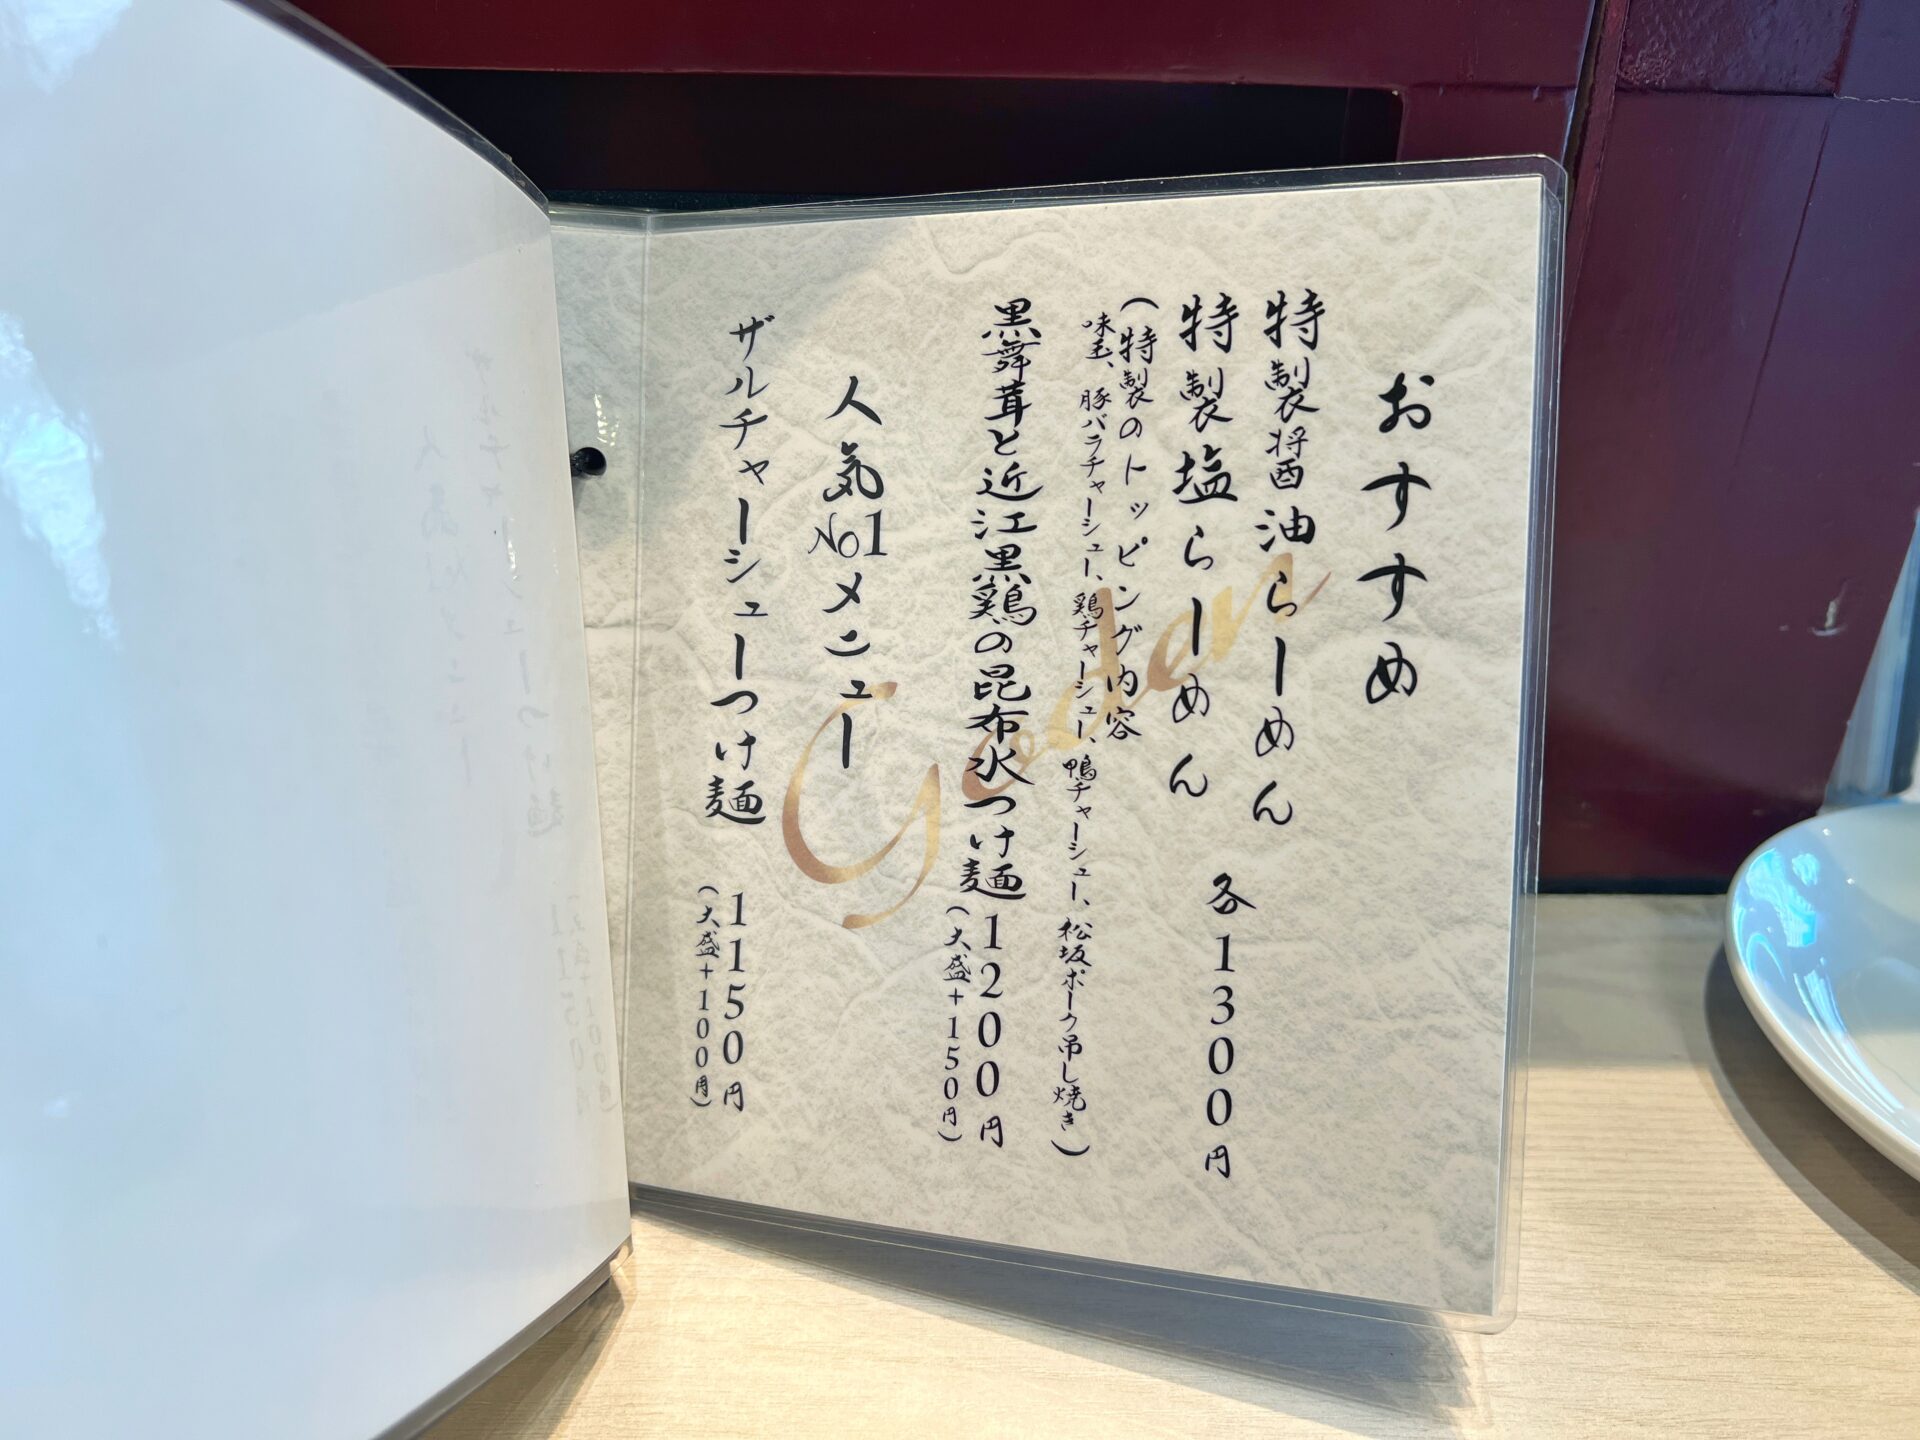 おすすめ
特製醤油らーめん
特製塩らーめん
各1300円
(特製のトッピング内容
味玉、豚バラチャーシュー、鶏チャーシュー、鴨チャーシュー、松坂ポーク吊し焼き)
黒舞茸と近江黒鶏の昆布水つけ麺 1200円
(大盛+150円)
人気No1メニュー
ザルチャーシューつけ麺 1150円
(大盛+100円)